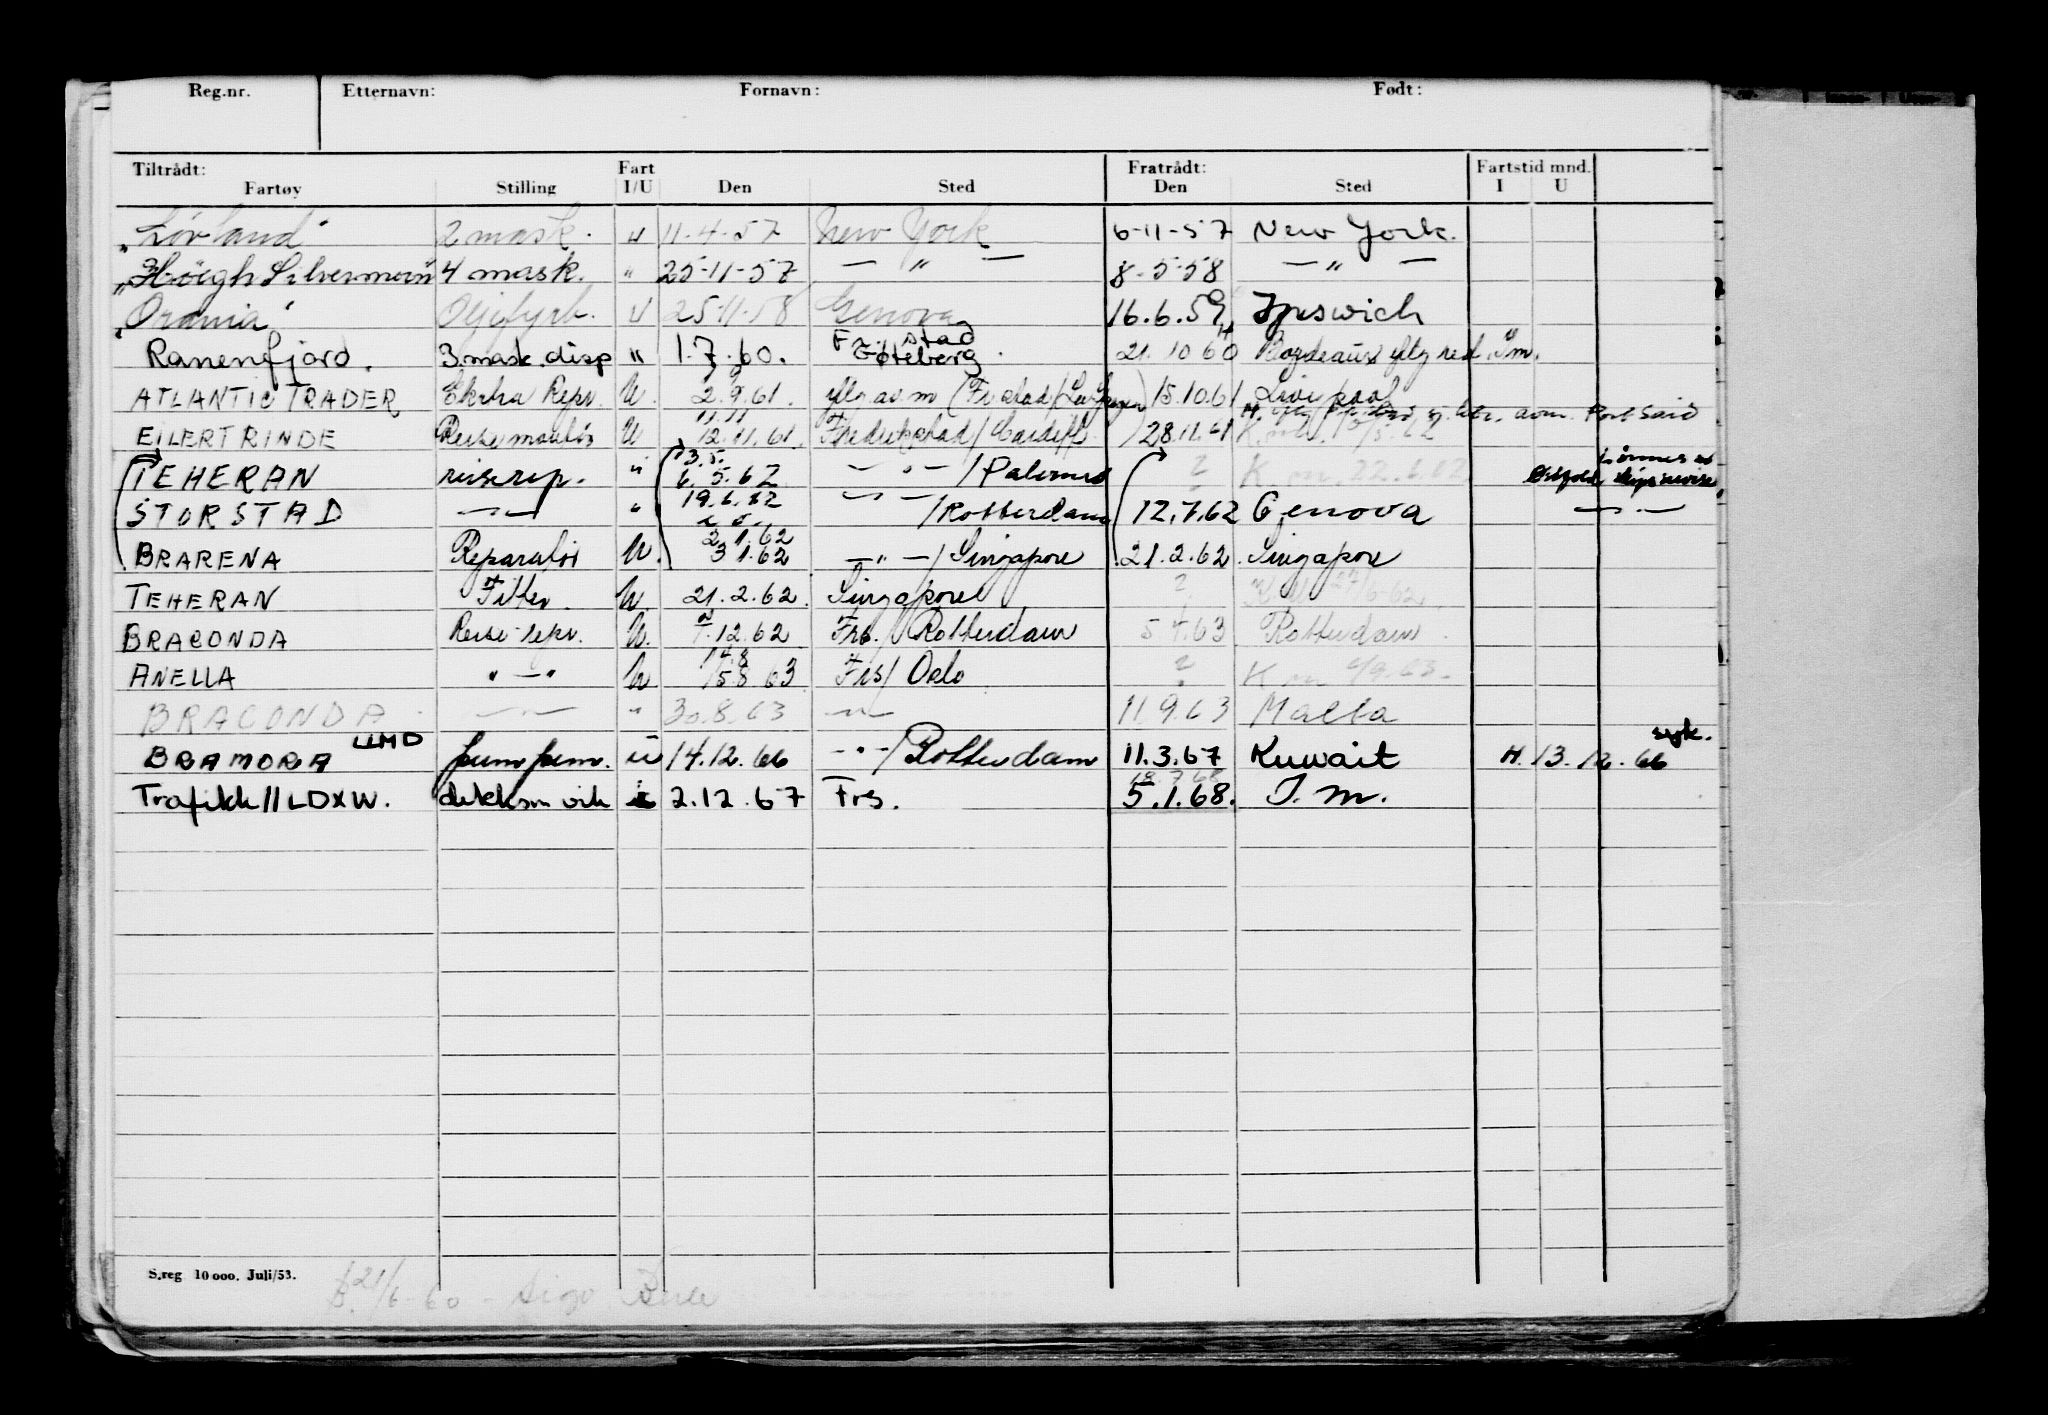 Reg.nr. Etternavn: Fornavn: Født:
Tiltrådt: Fart Fratrådt: Fartstid mnd.
Fartøy Stilling I/U Den Sted Den Sted I U
"Lørland" 2 mask. u 11-4-57 New York 6-11-57 New York.
"Høegh Silvermoon" 4 mask. " 25-11-57 — " — 8-5-58 — " —
"Orania" Oljefyrb. u 25-11-58 Genova 16.6.59 Ipswich
Fr. stad
Ranenfjord. 3.mask.disp " 1.7.60. Gøteberg. 21.10 60 Bordeaux
ATLANTIC TRADER Ekstra Repr. U. 2.9.61. 15.10.61 Liverpool
11.11 Port Said
EILERT RINDE Reisemontør U 12.11.61. Fredrikstad/Cardiff 28.11.61
3.5.
TEHERAN reiserep. " 6.5.62 — " — / Palermo ? K.m. 22.6.62
19.6.62
STORSTAD — " — " — " — / Rotterdam 12.7.62 Genova — " —
2.1.62
BRARENA Reparatør U. 3 1.62 — " — / Singapore 21.2.62. Singapore
TEHERAN Fitter. U. 21.2.62. Singapore ?
BRACONDA Reise-repr. U. 1.12.62 Frs. / Rotterdam 5.4.63 Rotterdam
14.8
ANELLA " — " U 15.8.63 Frs/ Oslo ? K.m 9.63.
BRACONDA — " — " 30.8.63 — " — 11.9.63 Malta
LLMD syk.
BRAMORA pumpem. u 14.12.66 — " — / Rotterdam 11.3.67 Kuwait H. 13.12.66
18.7.68
Trafikk//LDXW. dekksm vik 2.12.67 Frs. 5.1.68. I.m.
S.reg 10 000. Juli/53.
21/6-60 -